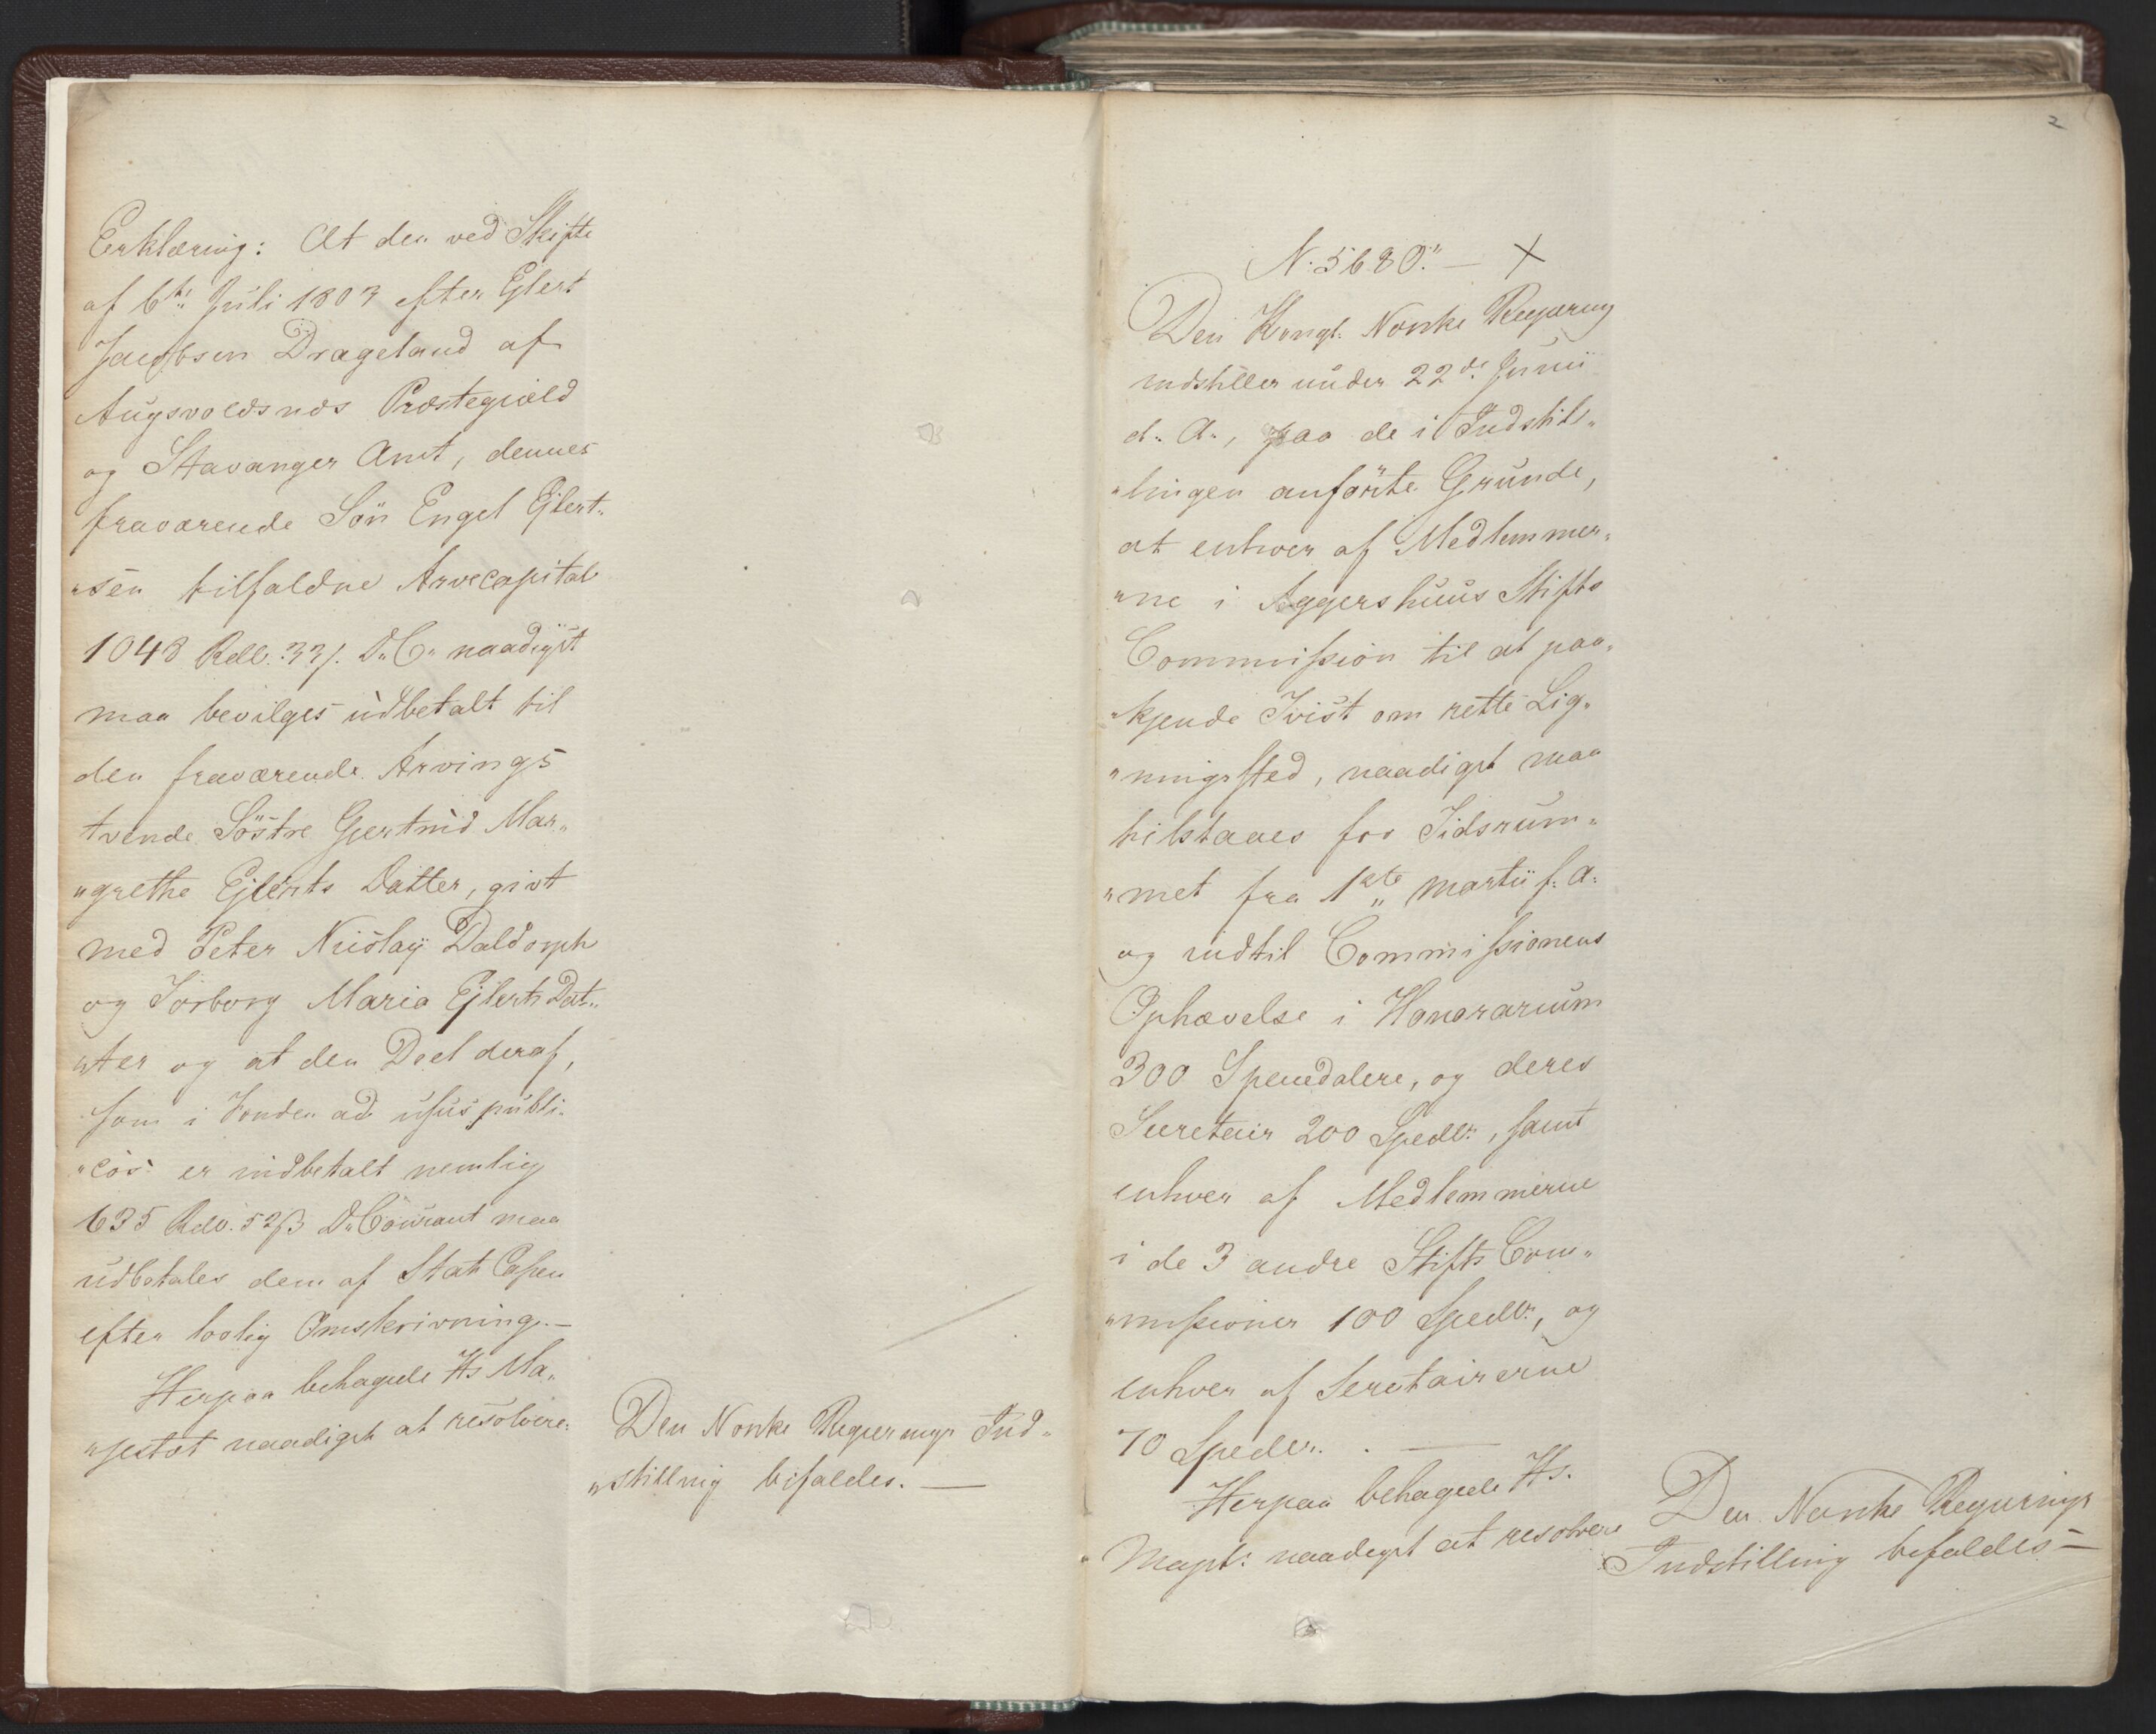 Erklæring: At den ved Skifte
af 6te Juli 1803 efter Ejlert
Jacobsen Drageland af
Augsvoldsnæs Præstegiæld
og Stavanger Amt, dennes
fraværende Sön Engel Ejlert„
„sen tilfaldne Arvecapital
1048 Rdlr. 33ß. D„C„ naadigst
maa bevilges udbetalt til
den fraværende Arvings
tvende Söstre Gjertrud Mar„
„grethe Ejlerts Datter, givt
med Peter Nicolaÿ Daldorph
og Torborg Maria Ejlerts Dat„
„ter og at den Deel deraf,
som i Fonden ad usus publi„
„cos er indbetalt nemlig
635 Rdlr. 52ß D„Courant maa
udbetales dem af Stats Cassen
efter lovlig Omskrivning.—
Herpaa behagede Hs Ma„
„jestæt naadigst at resolvere:
Den Norske Regjerings Ind„
„stilling bifaldes. —
2
N. 5680." — X
Den Kongl. Norske Regjering
indstiller under 22de Junii
d„ A„, paa de i Indstil„
„lingen anförte Grunde,
at enhver af Medlemmer„
„ne i Aggershuus Stifts
Commission til at paa„
„kjende Tvist om rette Lig„
„ningssted, naadigst maa
tilstaaes for Tidsrum„
„met fra 1ste Martii f. A.
og indtil Commissionens
Ophævelse i Honorarium
300 Speciedalere, og deres
Secretair 200 Spedlr., samt
enhver af Medlemmerne
i de 3 andre Stifts Com„
„missioner 100 Spedlr., og
enhver af Secretairerne
70 Spedlr. —
Herpaa behagede Hs.
Majst: naadigst at resolvere
Den Norske Regjerings
Indstilling bifaldes —